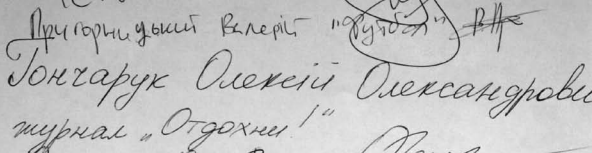 Пригорницький Валерій "Футбол"
Гончарук Олексій Олександрови
журнал „Отдохни!“